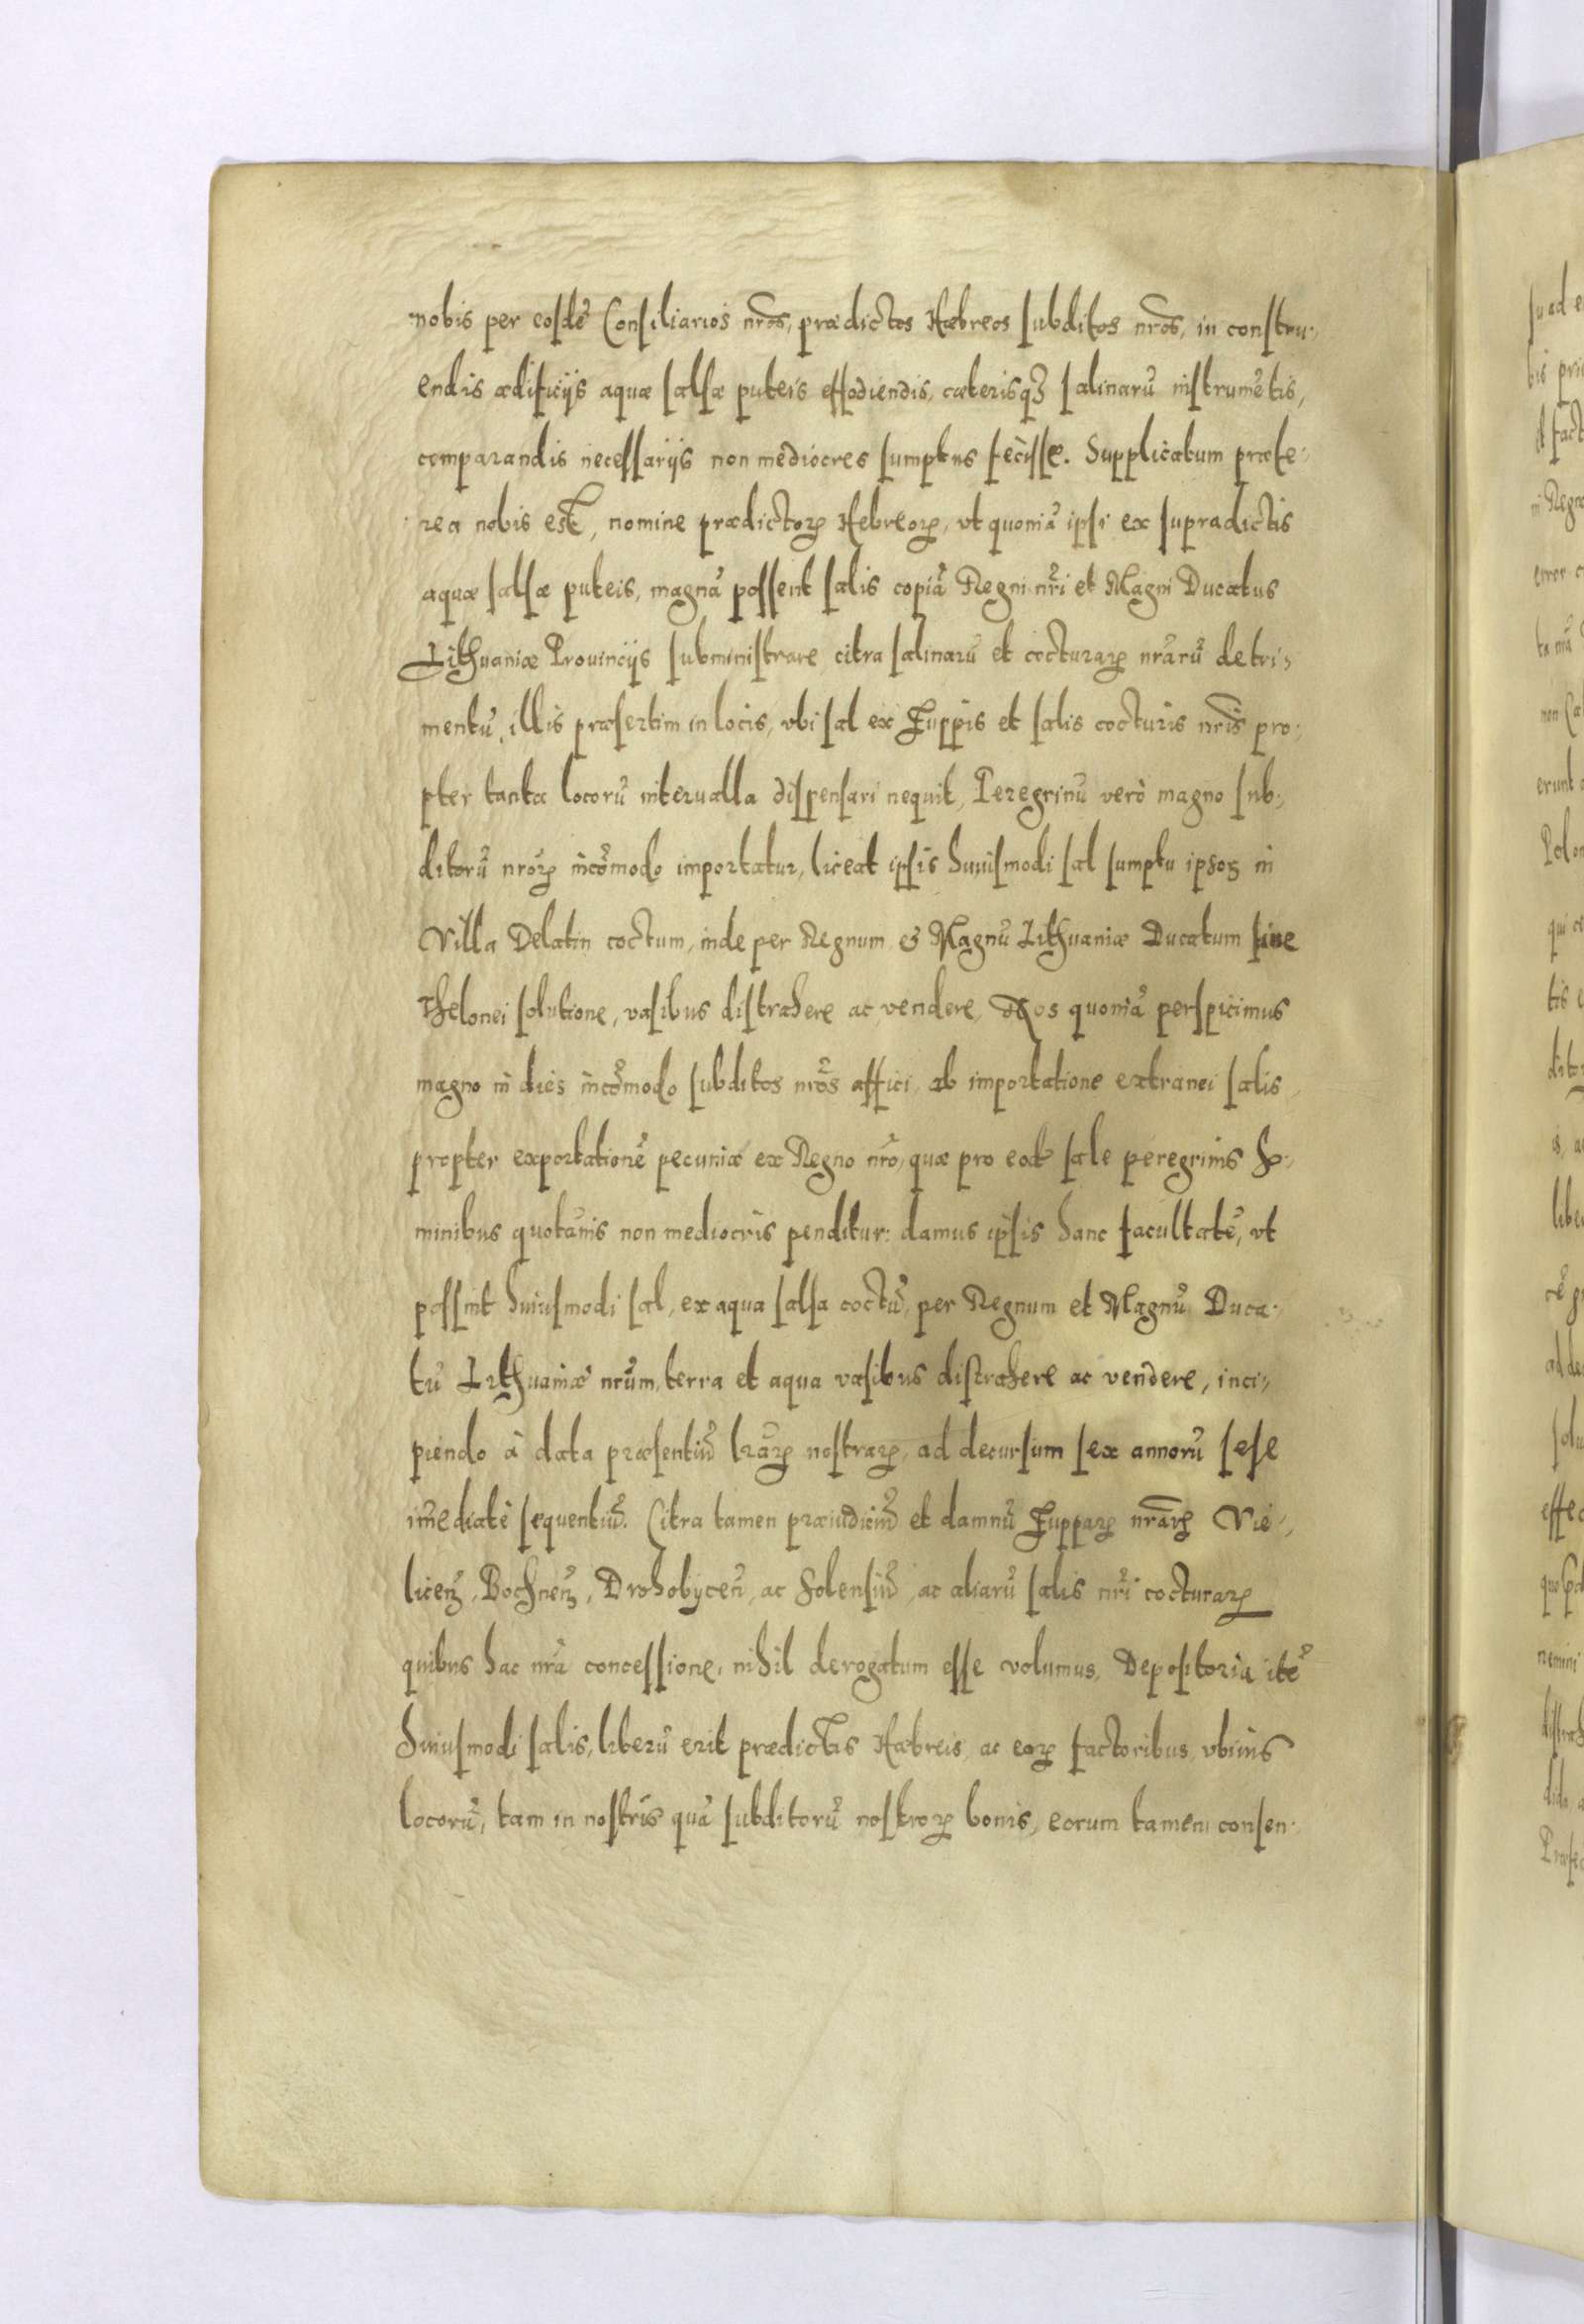 nobis per eosdē Consiliarios nr̃os, prædictos Hæbreos subditos nr̃os, in constru-
endis ædificijs aquæ salsæ puteis effodiendis, cæterisq3 salinarū instrumẽtis,
comparandis necessarijs non mediocres sumptus fecisse. Supplicatum præte-
rea nobis est, nomine prædictoꝝ Hebreoꝝ, vt quoniā ipsi ex supradictis
aquæ salsæ puteis, magnā possent salis copiā Regni nr̃i et Magni Ducatus
Lithuaniæ Prouincijs subministrare citra salinarū et cocturaꝝ nr̃arū detri-
mentū, illis præsertim in locis, vbi sal ex Zuppis et salis cocturis nr̃is pro-
pter tanta locorū interualla dispensari nequit, Peregrinū verò magno sub-
ditorū nr̃oꝝ incōmodo importatur, liceat ipsis huiusmodi sal sumptu ipsoꝝ in
Villa Delatin coctum, inde per Regnum & Magnū Lithuaniæ Ducatum sine
Thelonei solutione, vasibus distrahere ac vendere, Nos quoniā perspicimus
magno in dies incōmodo subditos nr̃os affici, ab importatione extranei salis
propter exportationē pecuniæ ex Regno nr̃o, quæ pro eodē sale peregrinis ho-
minibus quotānis non mediocris penditur: damus ipsis hanc facultatē, vt
possint huiusmodi sal, ex aqua salsa coctū, per Regnum et Magnū Duca-
tū Lithuaniæ nr̃um, terra et aqua vasibus distrahere ac vendere, inci-
piendo à data præsentiū lr̃aꝝ nostraꝝ, ad decursum sex annorū sese
im̃ediatè sequentiū. Citra tamen præiudiciū et damnū Zuppaꝝ nr̃aꝝ Vie-
licen̄, Bochnen̄, Drohobycen̄, ac Solensiū, ac aliarū salis nr̃i cocturaꝝ
quibus hac nr̃a concessione, nihil derogatum esse volumus, Depositoria itē
huiusmodi salis, liberū erit prædictis Hæbreis, ac eoꝝ factoribus vbiuis
locorū, tam in nostris quā subditorū nostroꝝ bonis, eorum tamen consen-